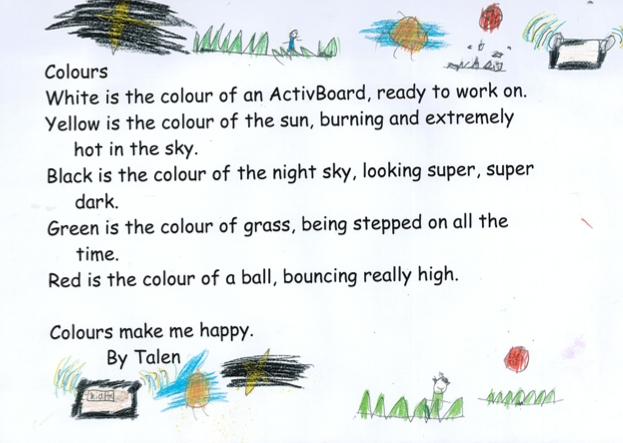 Colours
White is the colour of an ActivBoard, ready to work on.
Yellow is the colour of the sun, burning and extremely
hot in the sky.
Black is the colour of the night sky, looking super, super
dark.
Green is the colour of grass, being stepped on all the
time.
Red is the colour of a ball, bouncing really high.
Colours make me happy.
By Talen